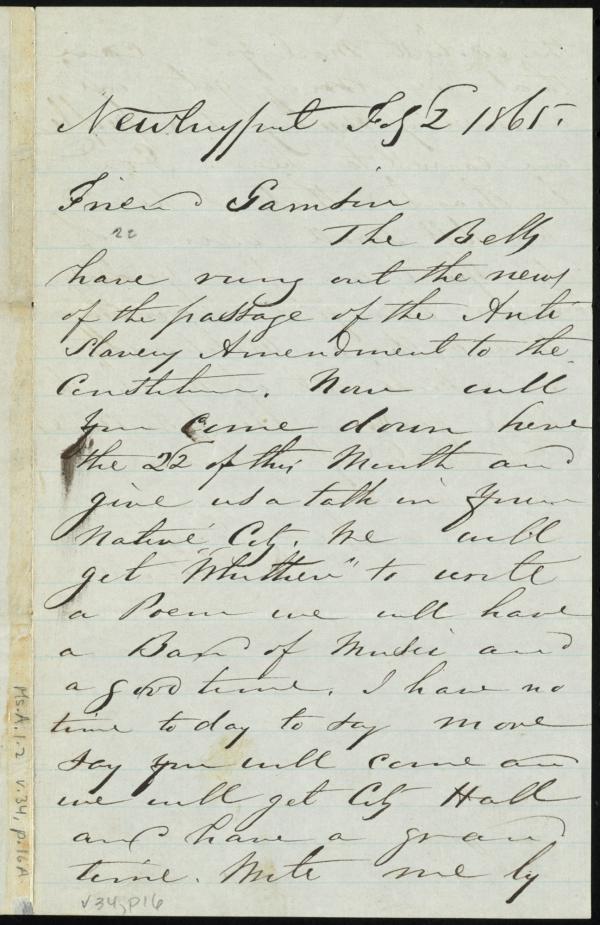 Newburyport Feb 2 1865.
Friend Garrison
22
The Bells
have rung out the news
of the passage of the Anti
Slavery Amendment to the
Constitution. Now will
you come down here
the 22 of this Month and
give us a talk in your
Native City. We will
get "Whittier" to write
a Poem we will have
a Band of Music and
a good time. I have no
time to day to say more
say you will come and
we will get City Hall
and have a grand
time. Write me by
Ms.A.1.2 v.34, p.16A
v34, p16